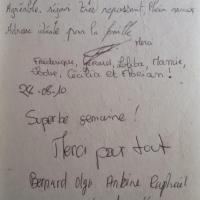 Agréable, séjour très reposant, Plein soleil
Adresse idéale pour la famille
Merci
Frédérique, Gérard, Lolita, Mamie,
Elodie, Cécilia et Florian !
24-08-10
Superbe semaine !
Merci pour tout
Bernard Olga Antoine Raphaël